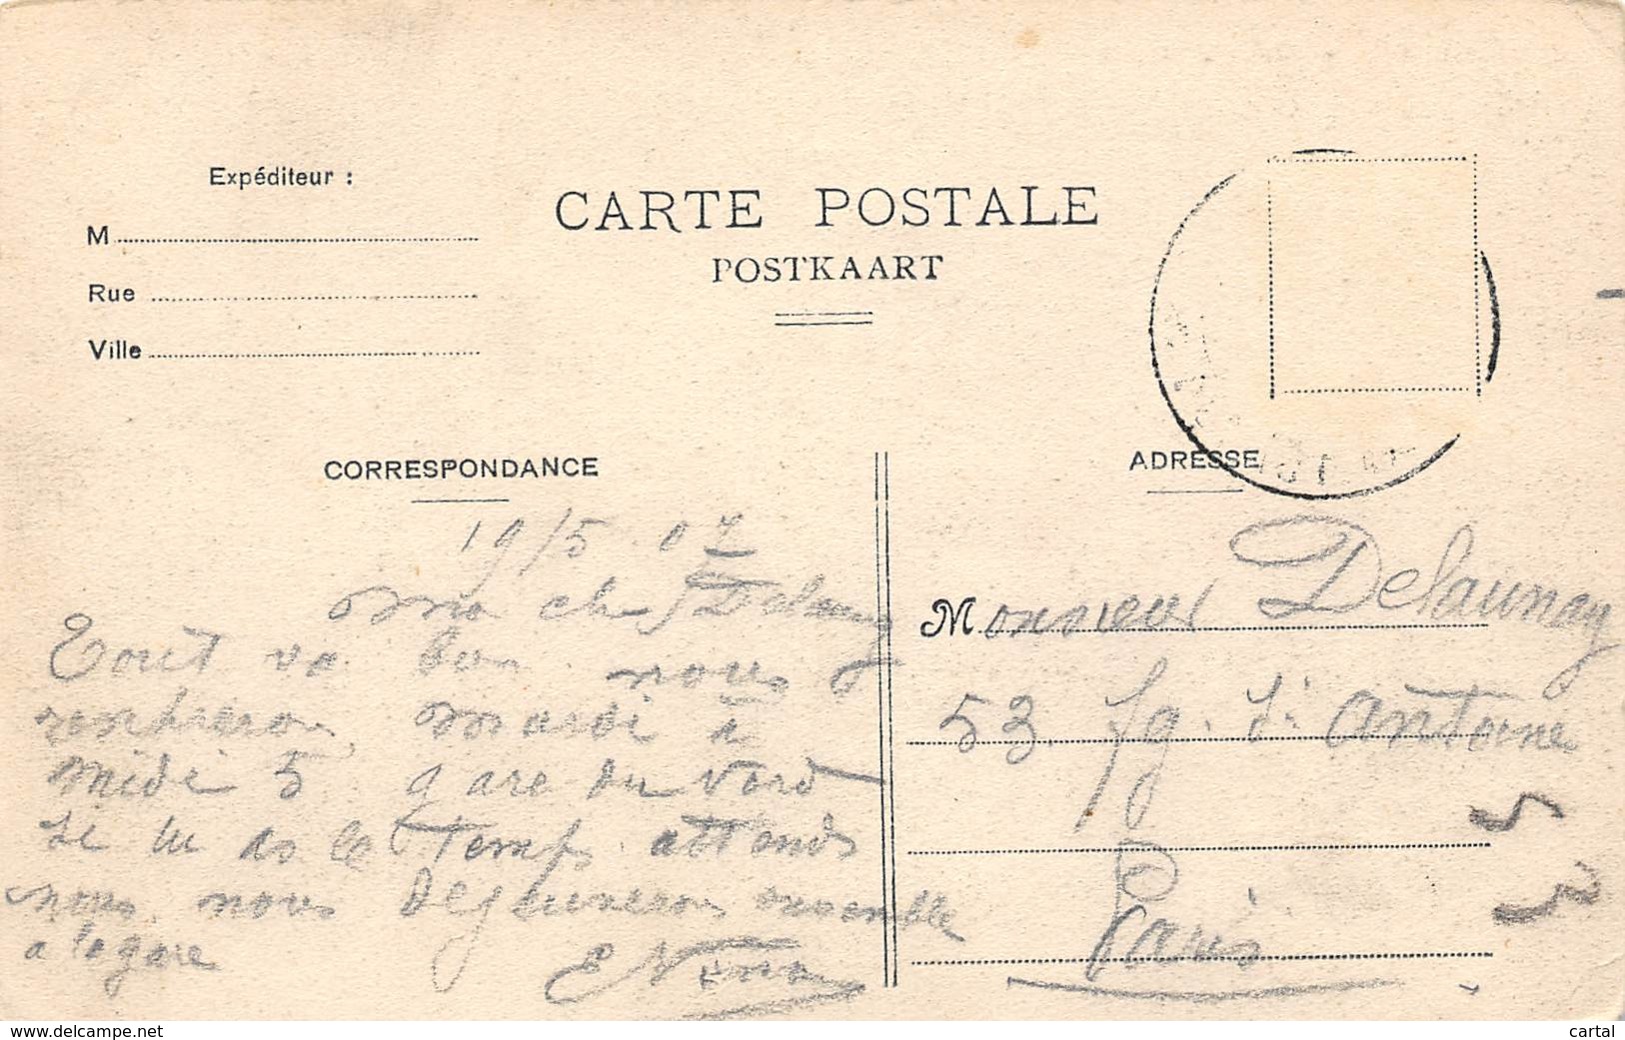 Expéditeur :
M
Rue
Ville
CARTE POSTALE
POSTKAART
CORRESPONDANCE
ADRESSE
19/5 07
mon cher Delaunay
Tout va bien nous
rentreron mardi à
midi 5 gare du Nord
si tu as le temps attends
nous nous dejeunerons ensemble
a la gare
Monsieur Delaunay
53 fg. St Antoine
Paris
www.delcampe.net
cartal